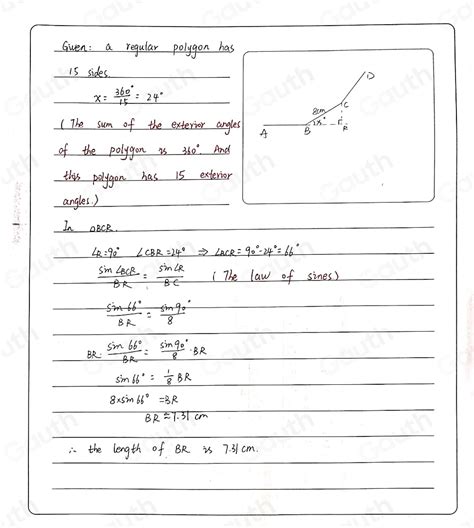 Given: a regular polygon has
15 sides.
x = 360°/15 = 24°
(The sum of the exterior angles
of the polygon is 360°. And
this polygon has 15 exterior
angles.)
A B C D R 8cm 24°
In △BCR.
∠R=90° ∠CBR=24° ⇒ ∠BCR=90°-24°=66°
sin∠BCR/BR = sin∠R/BC (The law of sines)
sin66°/BR = sin90°/8
BR· sin66°/BR = sin90°/8 ·BR
sin66° = 1/8 BR
8×sin66° =BR
BR≈7.31 cm
∴ the length of BR is 7.31cm.
Gauth